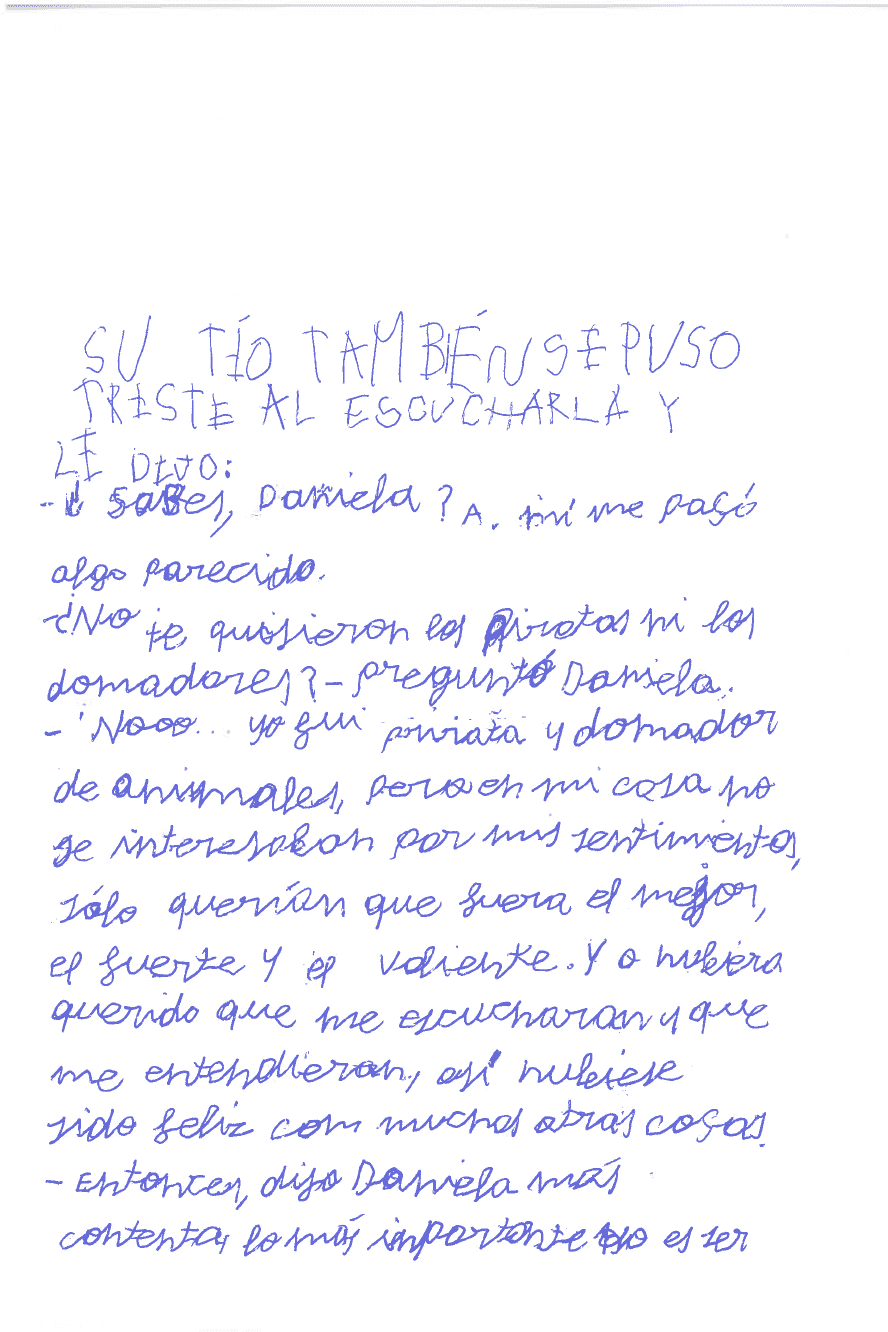 SU TÍO TAMBIÉN SE PUSO
TRISTE AL ESCUCHARLA Y
LE DIJO:
-¿ SABes, Daniela ? A. mí me pasó
algo parecido.
-¿No te quisieron los piratas ni los
domadores? - preguntó Daniela.
- Nooo... yo fui pirata y domador
de animales, pero en mi casa no
se interesaban por mis sentimientos,
sólo querían que fuera el mejor,
el fuerte y el valiente. Yo hubiera
querido que me escucharan y que
me entendieran, así hubiese
sido feliz com muchas otras cosas.
- Entonces, dijo Daniela más
contenta, lo más importante no es ser